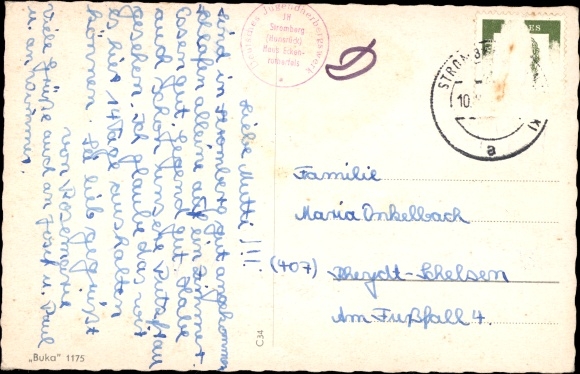 Liebe Mutti !!!
sind in Stromberg gut angekommen
schlafen alleine auf ein Zimmer.
Essen gut Gegend gut. Habe
auch schon unsere
gesehen. Ich glaube das wir
es hier 14 Tage aushalten
können. Sei lieb gegrüßt
von Rosemarie
Viele Grüße auch an Josef u. Paul
u. an
Deutsches Jugendherbergswerk
JH
Stromberg
(Hunsrück)
Haus
D
STROMBERG
10.
a
Familie
Maria Inkelbach
(407) Rheydt-Schelsen
Am Fußfall 4.
C34
„Buka" 1175